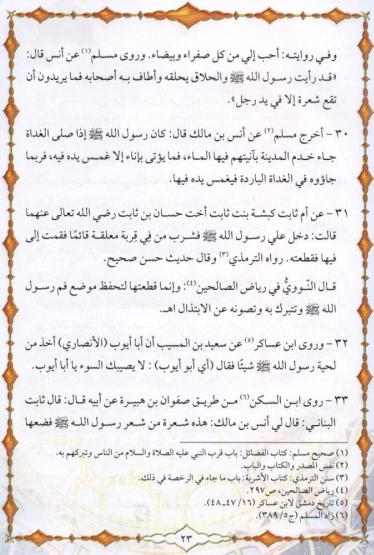 وفي روايته: أحب إلي من كل صفراء وبيضاء. وروى مسلم(١) عن أنس قال:
«قد رأيت رسول الله ﷺ والحلاق يحلقه وأطاف به أصحابه فما يريدون أن
تقع شعرة إلا في يد رجل».
٣٠ - أخرج مسلم(٢) عن أنس بن مالك قال: كان رسول الله ﷺ إذا صلى الغداة
جاء خدم المدينة بآنيتهم فيها الماء، فما يؤتى بإناء إلا غمس يده فيه، فربما
جاؤوه في الغداة الباردة فيغمس يده فيها.
٣١ - عن أم ثابت كبشة بنت ثابت أخت حسان بن ثابت رضي الله تعالى عنهما
قالت: دخل علي رسول الله ﷺ فشرب من فِي قِربة معلقة قائمًا فقمت إلى
فيها فقطعته. رواه الترمذي(٣) وقال حديث حسن صحيح.
قال النَّوويُّ في رياض الصالحين(٤): وإنما قطعتها لتحفظ موضع فم رسول
الله ﷺ وتتبرك به وتصونه عن الابتذال اهـ.
٣٢ - وروى ابن عساكر(٥) عن سعيد بن المسيب أن أبا أيوب (الأنصاري) أخذ من
لحية رسول الله ﷺ شيئًا فقال (أي أبو أيوب) : لا يصيبك السوء يا أبا أيوب.
٣٣ - روى ابن السكن(٦) من طريق صفوان بن هبيرة عن أبيه قال: قال ثابت
البناني: قال لي أنس بن مالك: هذه شعرة من شعر رسول الله ﷺ فضعها
(١) صحيح مسلم: كتاب الفضائل: باب قرب النبي عليه الصلاة والسلام من الناس وتبركهم به.
(٢) نفس المصدر والكتاب والباب.
(٣) سنن الترمذي: كتاب الأشربة: باب ما جاء في الرخصة في ذلك.
(٤) رياض الصالحين، ص٢٩٧.
(٥) تاريخ دمشق لابن عساكر (١٦/ ٤٧ـ٤٨).
(٦) زاد المسلم (ج٥/ ٣٨٩).
٢٣